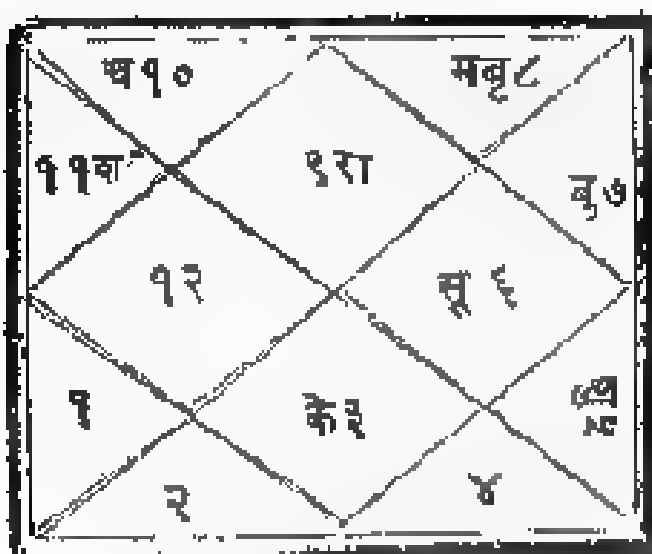 च१० मबृ८
११श ९रा बु७
१२ सू ६
१ के३
२ ४